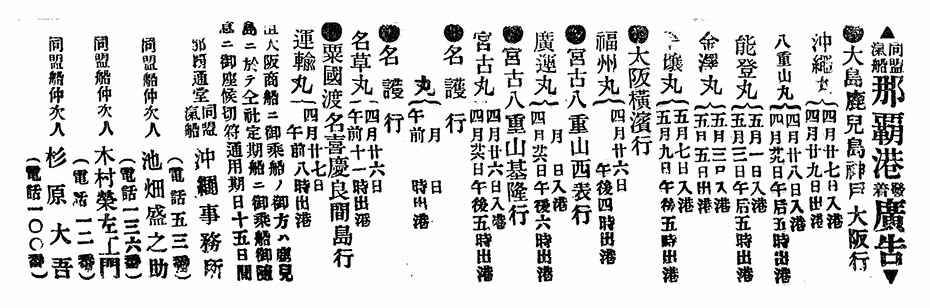 ▲同盟汽船那覇港發着廣告▼
●大島鹿兒島神戸大阪行
沖繩丸 四月廿七日入港 四月廿九日出港
八重山丸 四月廿八日入港 四月廿九日午后五時出港
能登丸 五月一日入港 五月三日午后五時出港
金澤丸 五月三日入港 五月五日出港
丸 五月七日入港 五月九日午後五時出港
●大阪横濱行
福州丸 四月廿六日 午後四時出港
●宮古八重山西表行
廣運丸 月 日入港 四月廿六日午後六時出港
●宮古八重山基隆行
宮古丸 四月廿六日入港 四月廿六日午後五時出港
●名護行
丸 月 日 午前 時出港
●名護行
名草丸 四月廿六日 午前十一時出港
●粟國渡名喜慶良間島行
運輸丸 四月廿七日 午前八時出港
大阪商船ニ御乘船ノ御方ハ鹿兒
島ニ於テ仝社定期船ニ御乘船御隨
意ニ御座候切符通用期日十五日間
那覇通堂 同盟汽船 沖繩事務所
(電話五三番)
同盟船仲次人 池畑盛之助
(電話一三六番)
同盟船仲次人 木村榮左工門
(電話一二番)
同盟船仲次人 杉原大吾
(電話一〇〇番)